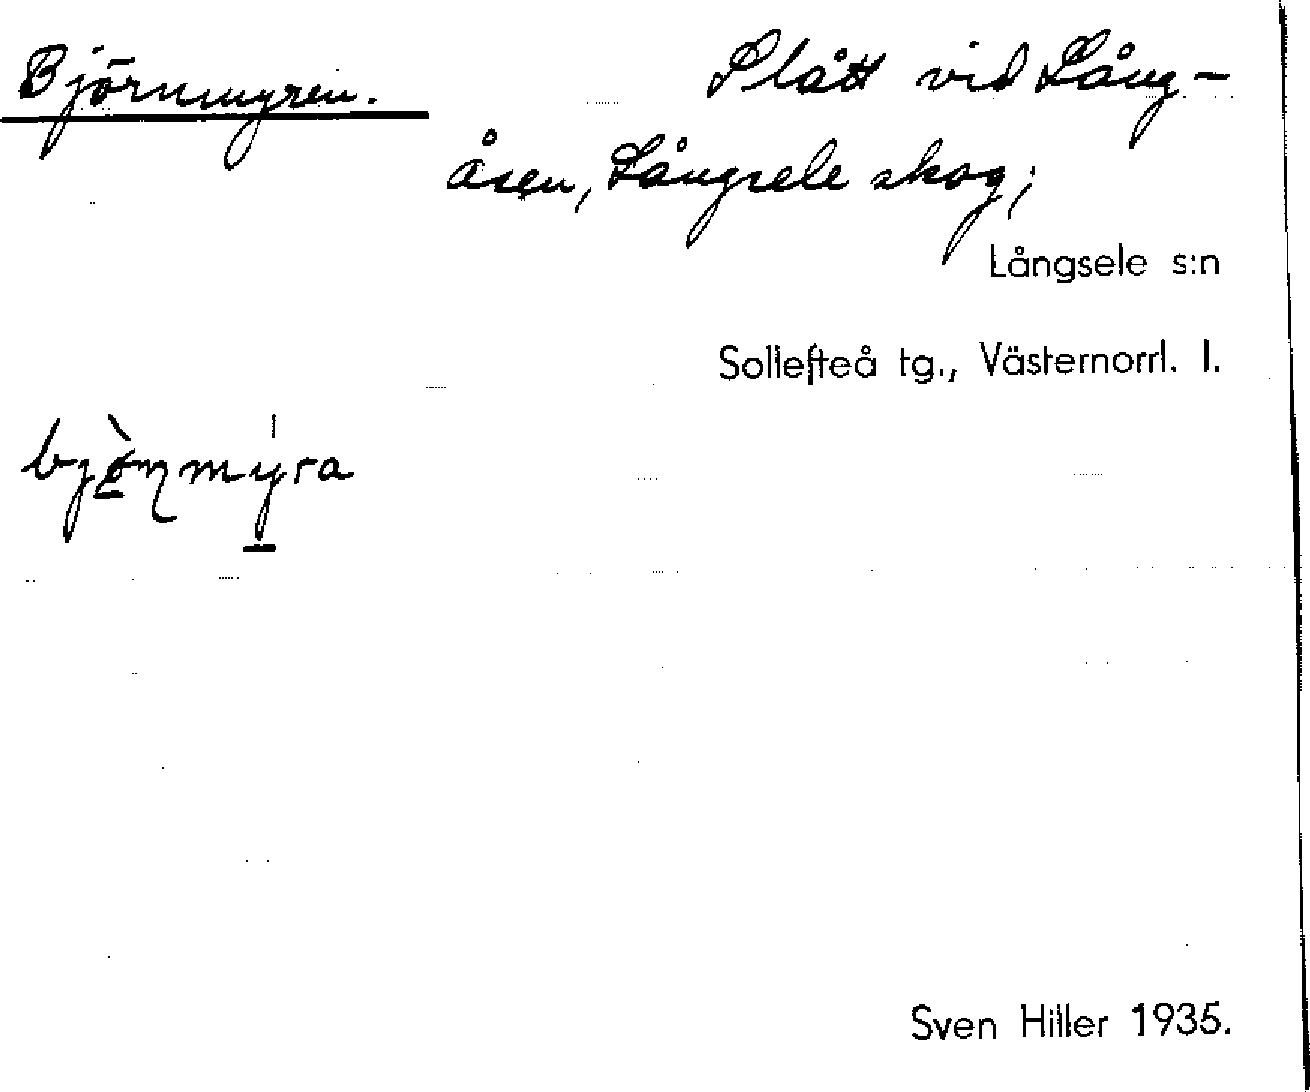 Björnmyren. Slått vid Lång-
åsen, Långsele skog;
Långsele s:n
Sollefteå tg., Västernorrl. l.
Sven Hiller 1935.